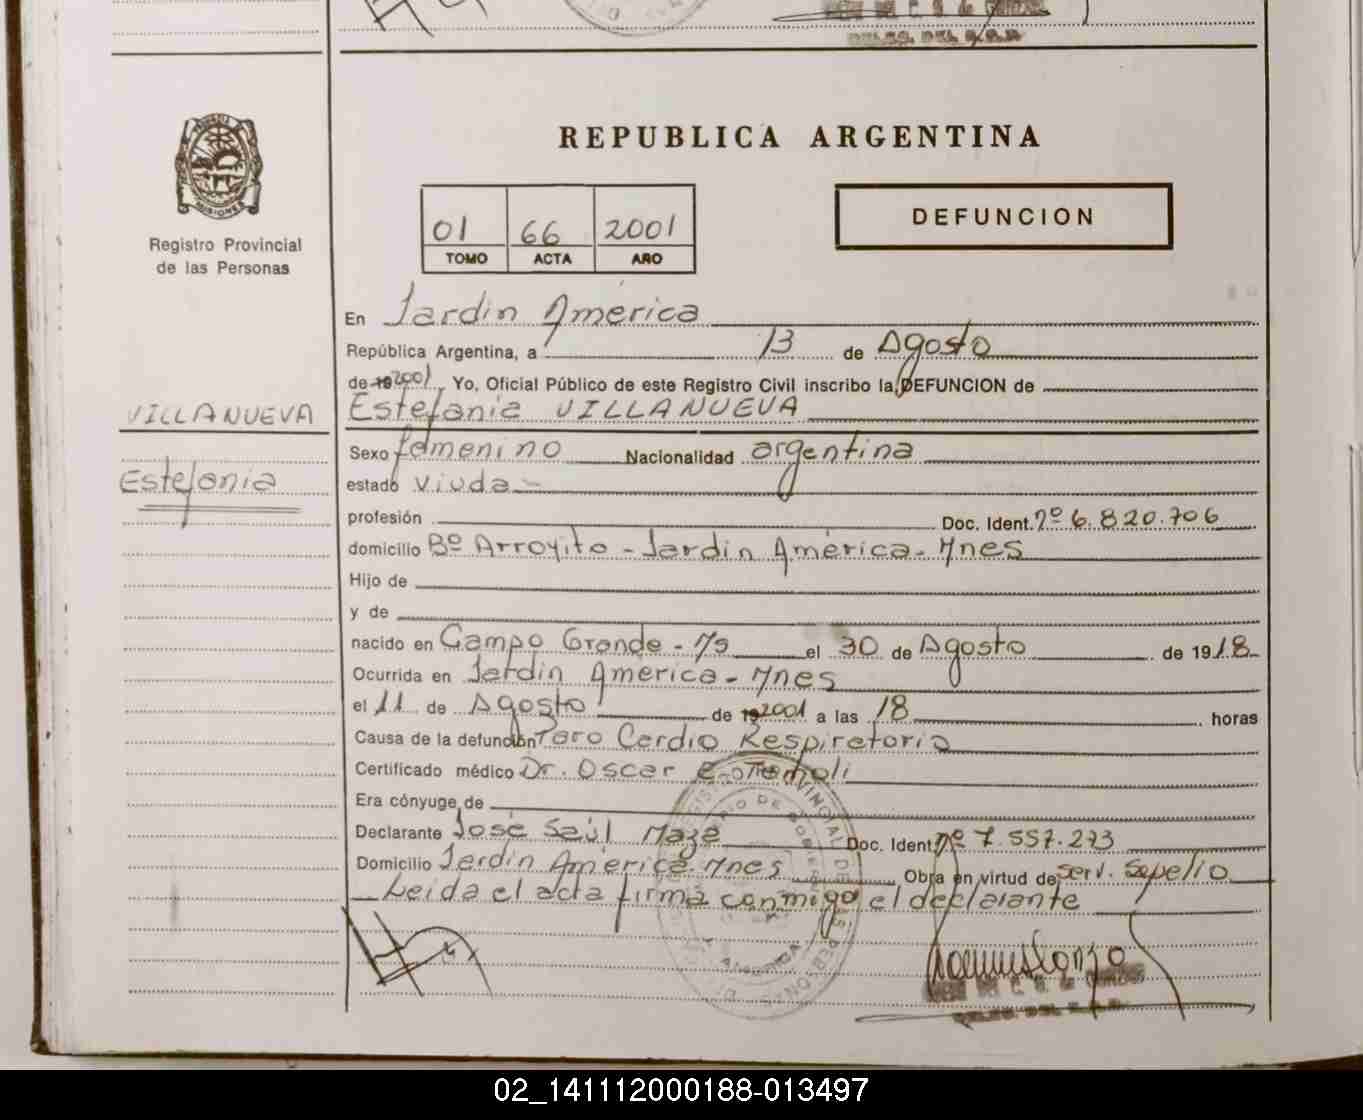 REPUBLICA ARGENTINA
MISIONES
Registro Provincial
de las Personas
01 66 2001
TOMO ACTA AÑO
DEFUNCION
En Jardín América
República Argentina, a 13 de Agosto
de 19 2001, Yo, Oficial Público de este Registro Civil inscribo la DEFUNCION de
VILLANUEVA
Estefania
Estefania VILLANUEVA
Sexo femenino Nacionalidad argentina
estado viuda
profesión Doc. Ident. nº 6.820.706
domicilio Bº Arroyito - Jardín América - Mnes
Hijo de
y de
nacido en Campo Grande - Ms el 30 de Agosto de 1918
Ocurrida en Jardín América - Mnes
el 11 de Agosto de 19 2001 a las 18 horas
Causa de la defunción Paro Cardio Respiratorio
Certificado médico Dr. Oscar
Era cónyuge de
Declarante José Saúl Maze Doc. Ident. nº 7.557.273
Domicilio Jardín América Mnes Obra en virtud de serv. Sepelio
Leida el acta firma conmigo el declarante
02_141112000188-013497